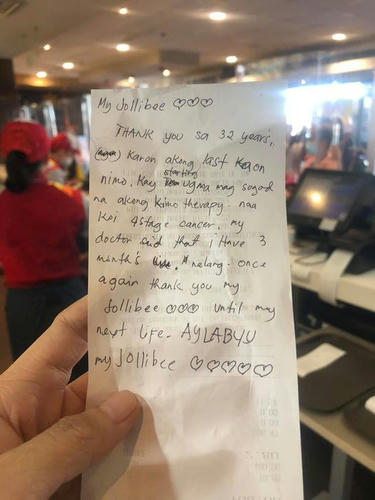 My Jollibee ♡♡♡
THANK you sa 32 years,
Karon akong last kaon
nimo. Kay starting ugma mag sogod
na akong kimo therapy. naa
koi 4stage cancer. my
doctor said that i have 3
month's nalang. once
again thank you my
Jollibee ♡♡♡ until my
next life. AYLABYU
my Jollibee ♡♡♡♡♡